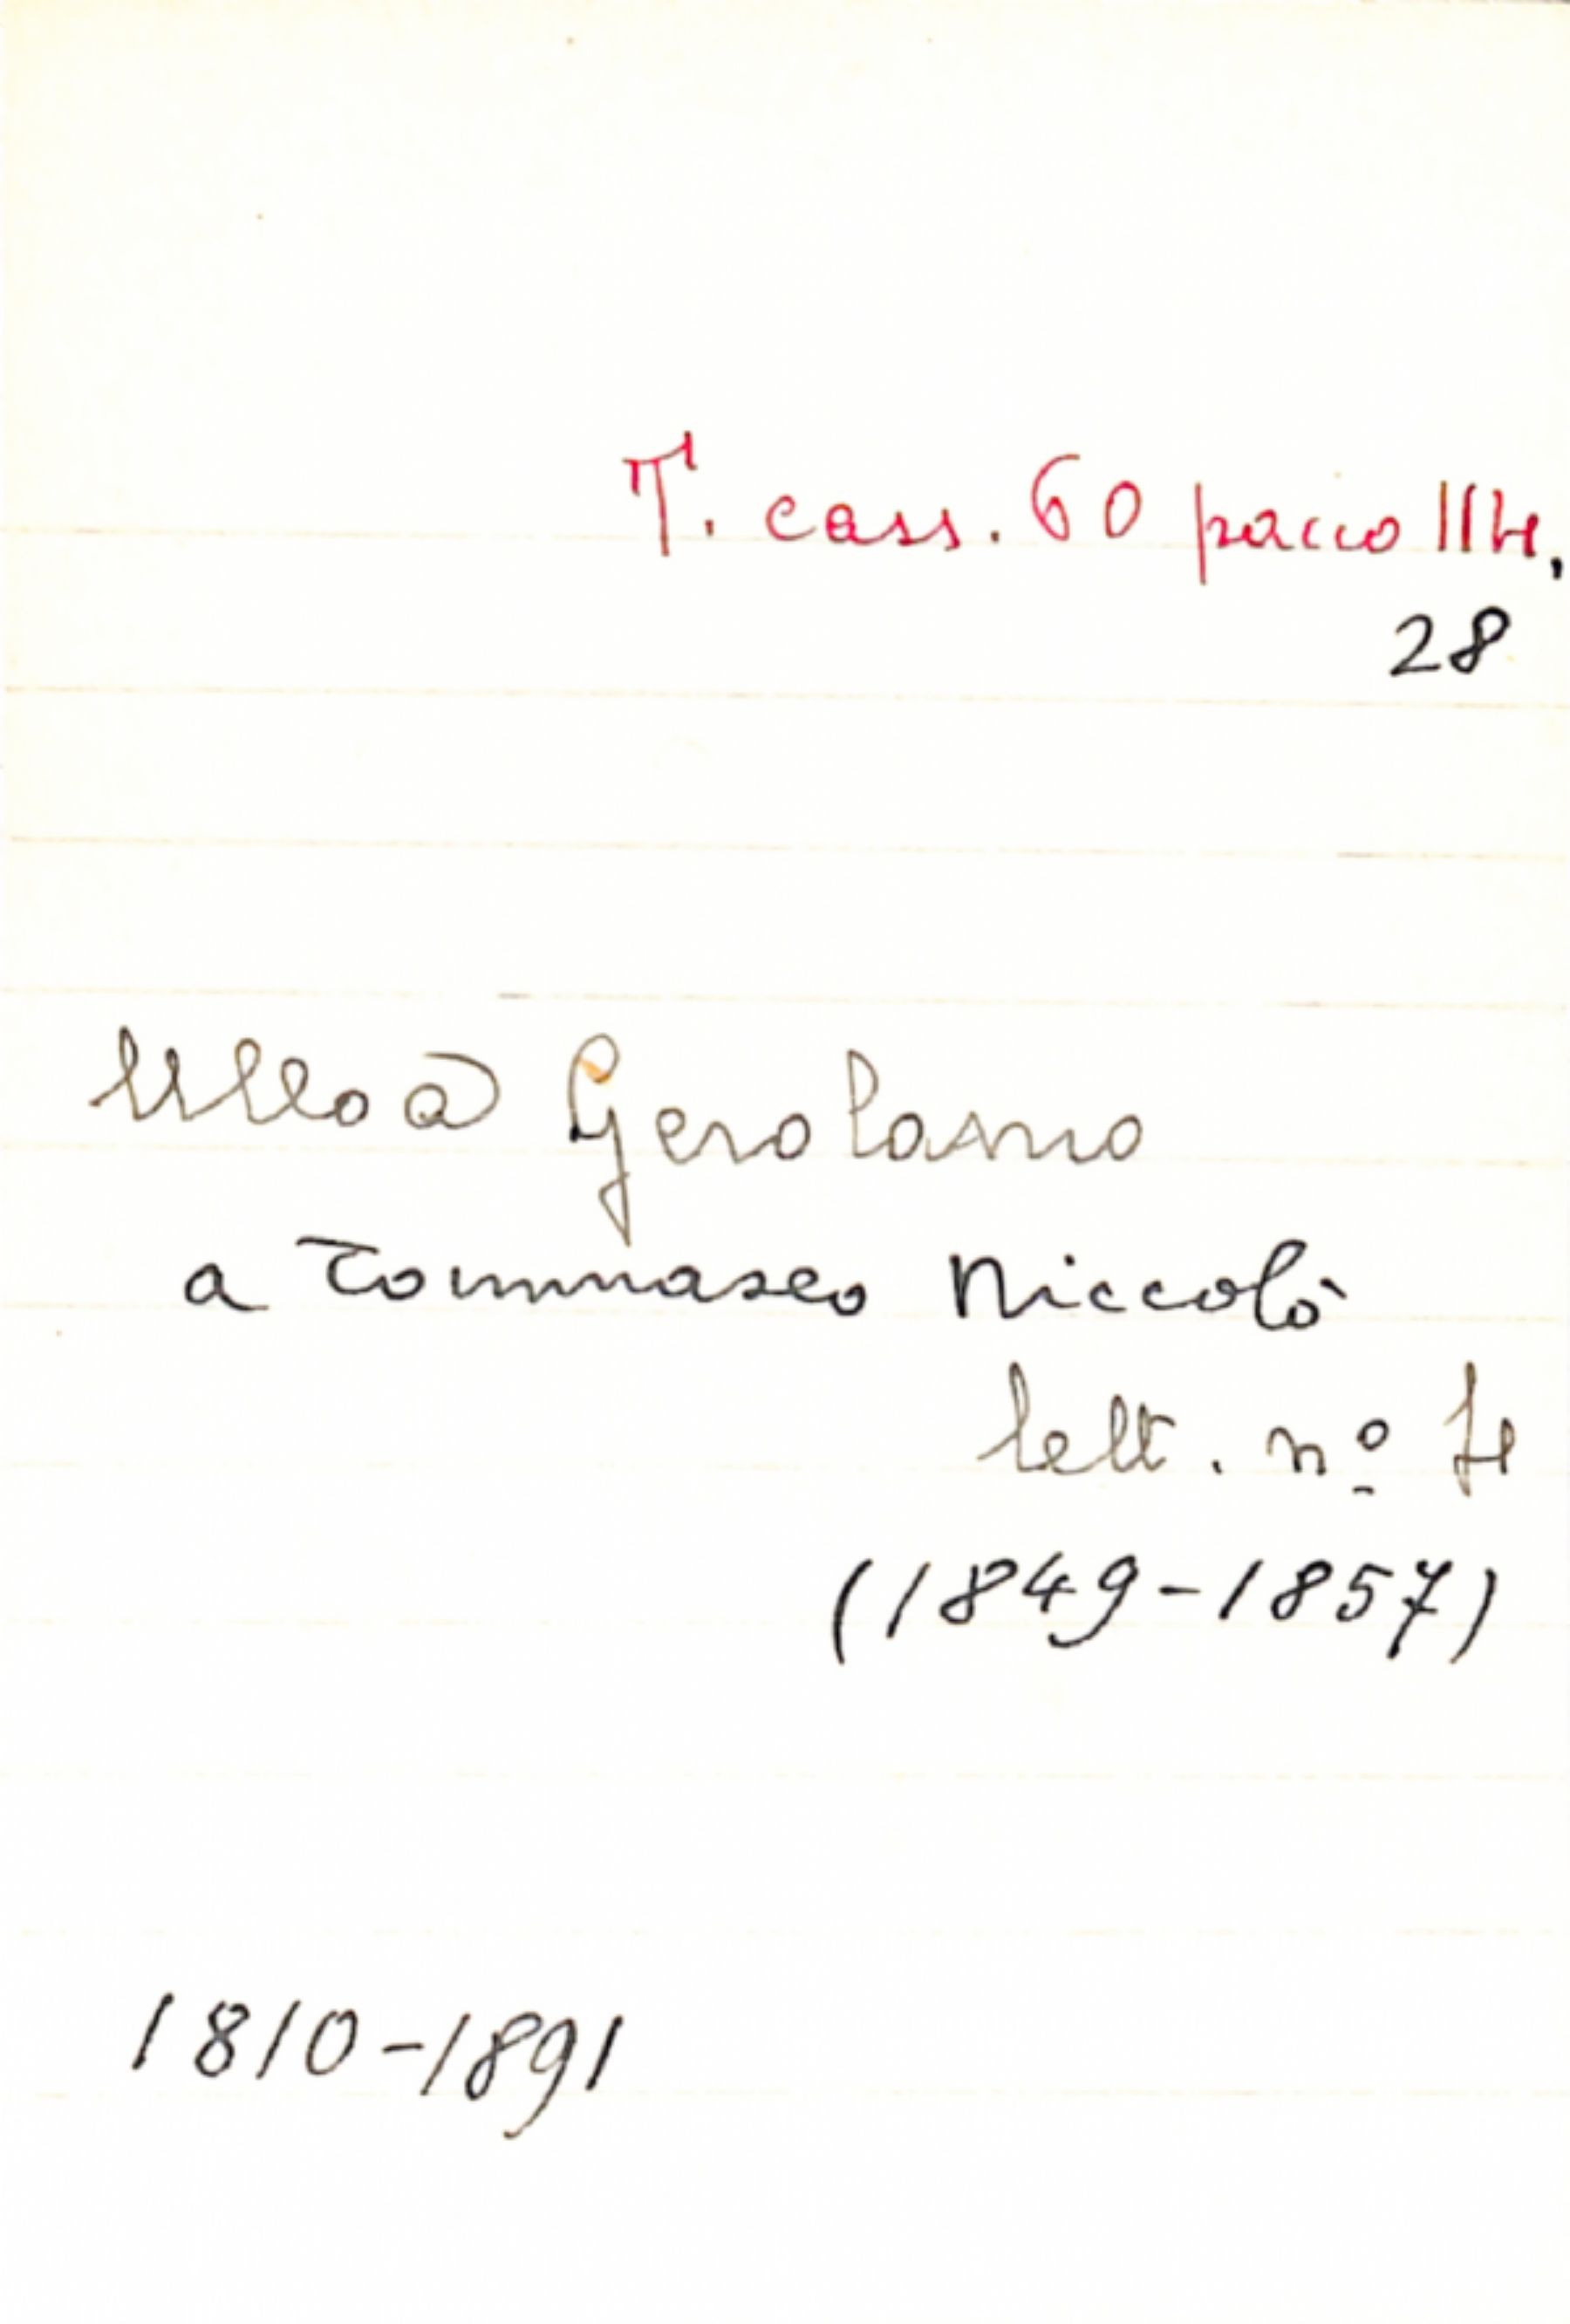 T. cass. 60 pacco 114,
28
Ulloa Gerolamo
a Tommaseo Niccolò
lett. nº 4
(1849-1857)
1810-1891